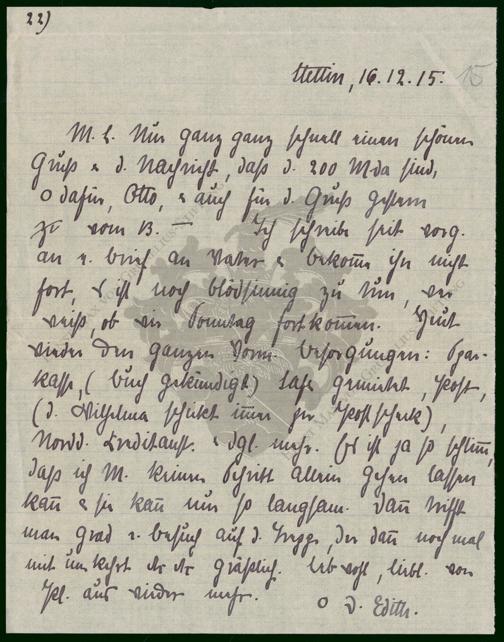 22)
Stettin, 16.12.15.
15
M. L. Nur ganz ganz schnell einen schönen
Gruß u. d. Nachricht, daß d. 200 M da sind,
o dafür, Otto, u. auch für d. Gruß gestern
vom 13. – Ich schreibe seit vorg.
an e. Brief an Vater u. bekomme ihn nicht
fort, es ist noch blödsinnig zu tun, wer
weiß, ob wir Sonntag fortkommen. Heut
wieder den ganzen Vorm. Besorgungen: Spar-
kasse, (Buch gekündigt) Safe gemietet, Post,
(d. Wilhelma schickt immer per Postscheck),
Nordd. Creditanst. u. dgl. mehr. Es ist ja so schlimm,
daß ich M. keinen Schritt allein gehen lassen
kann u. sie kann nur so langsam. Dann trifft
man grad e. Besuch auf d. Treppe, der dann noch mal
mit umkehrt etc etc gräßlich. Leb wohl, liebl. von
Kl. aus wieder mehr.
o D. Edith.